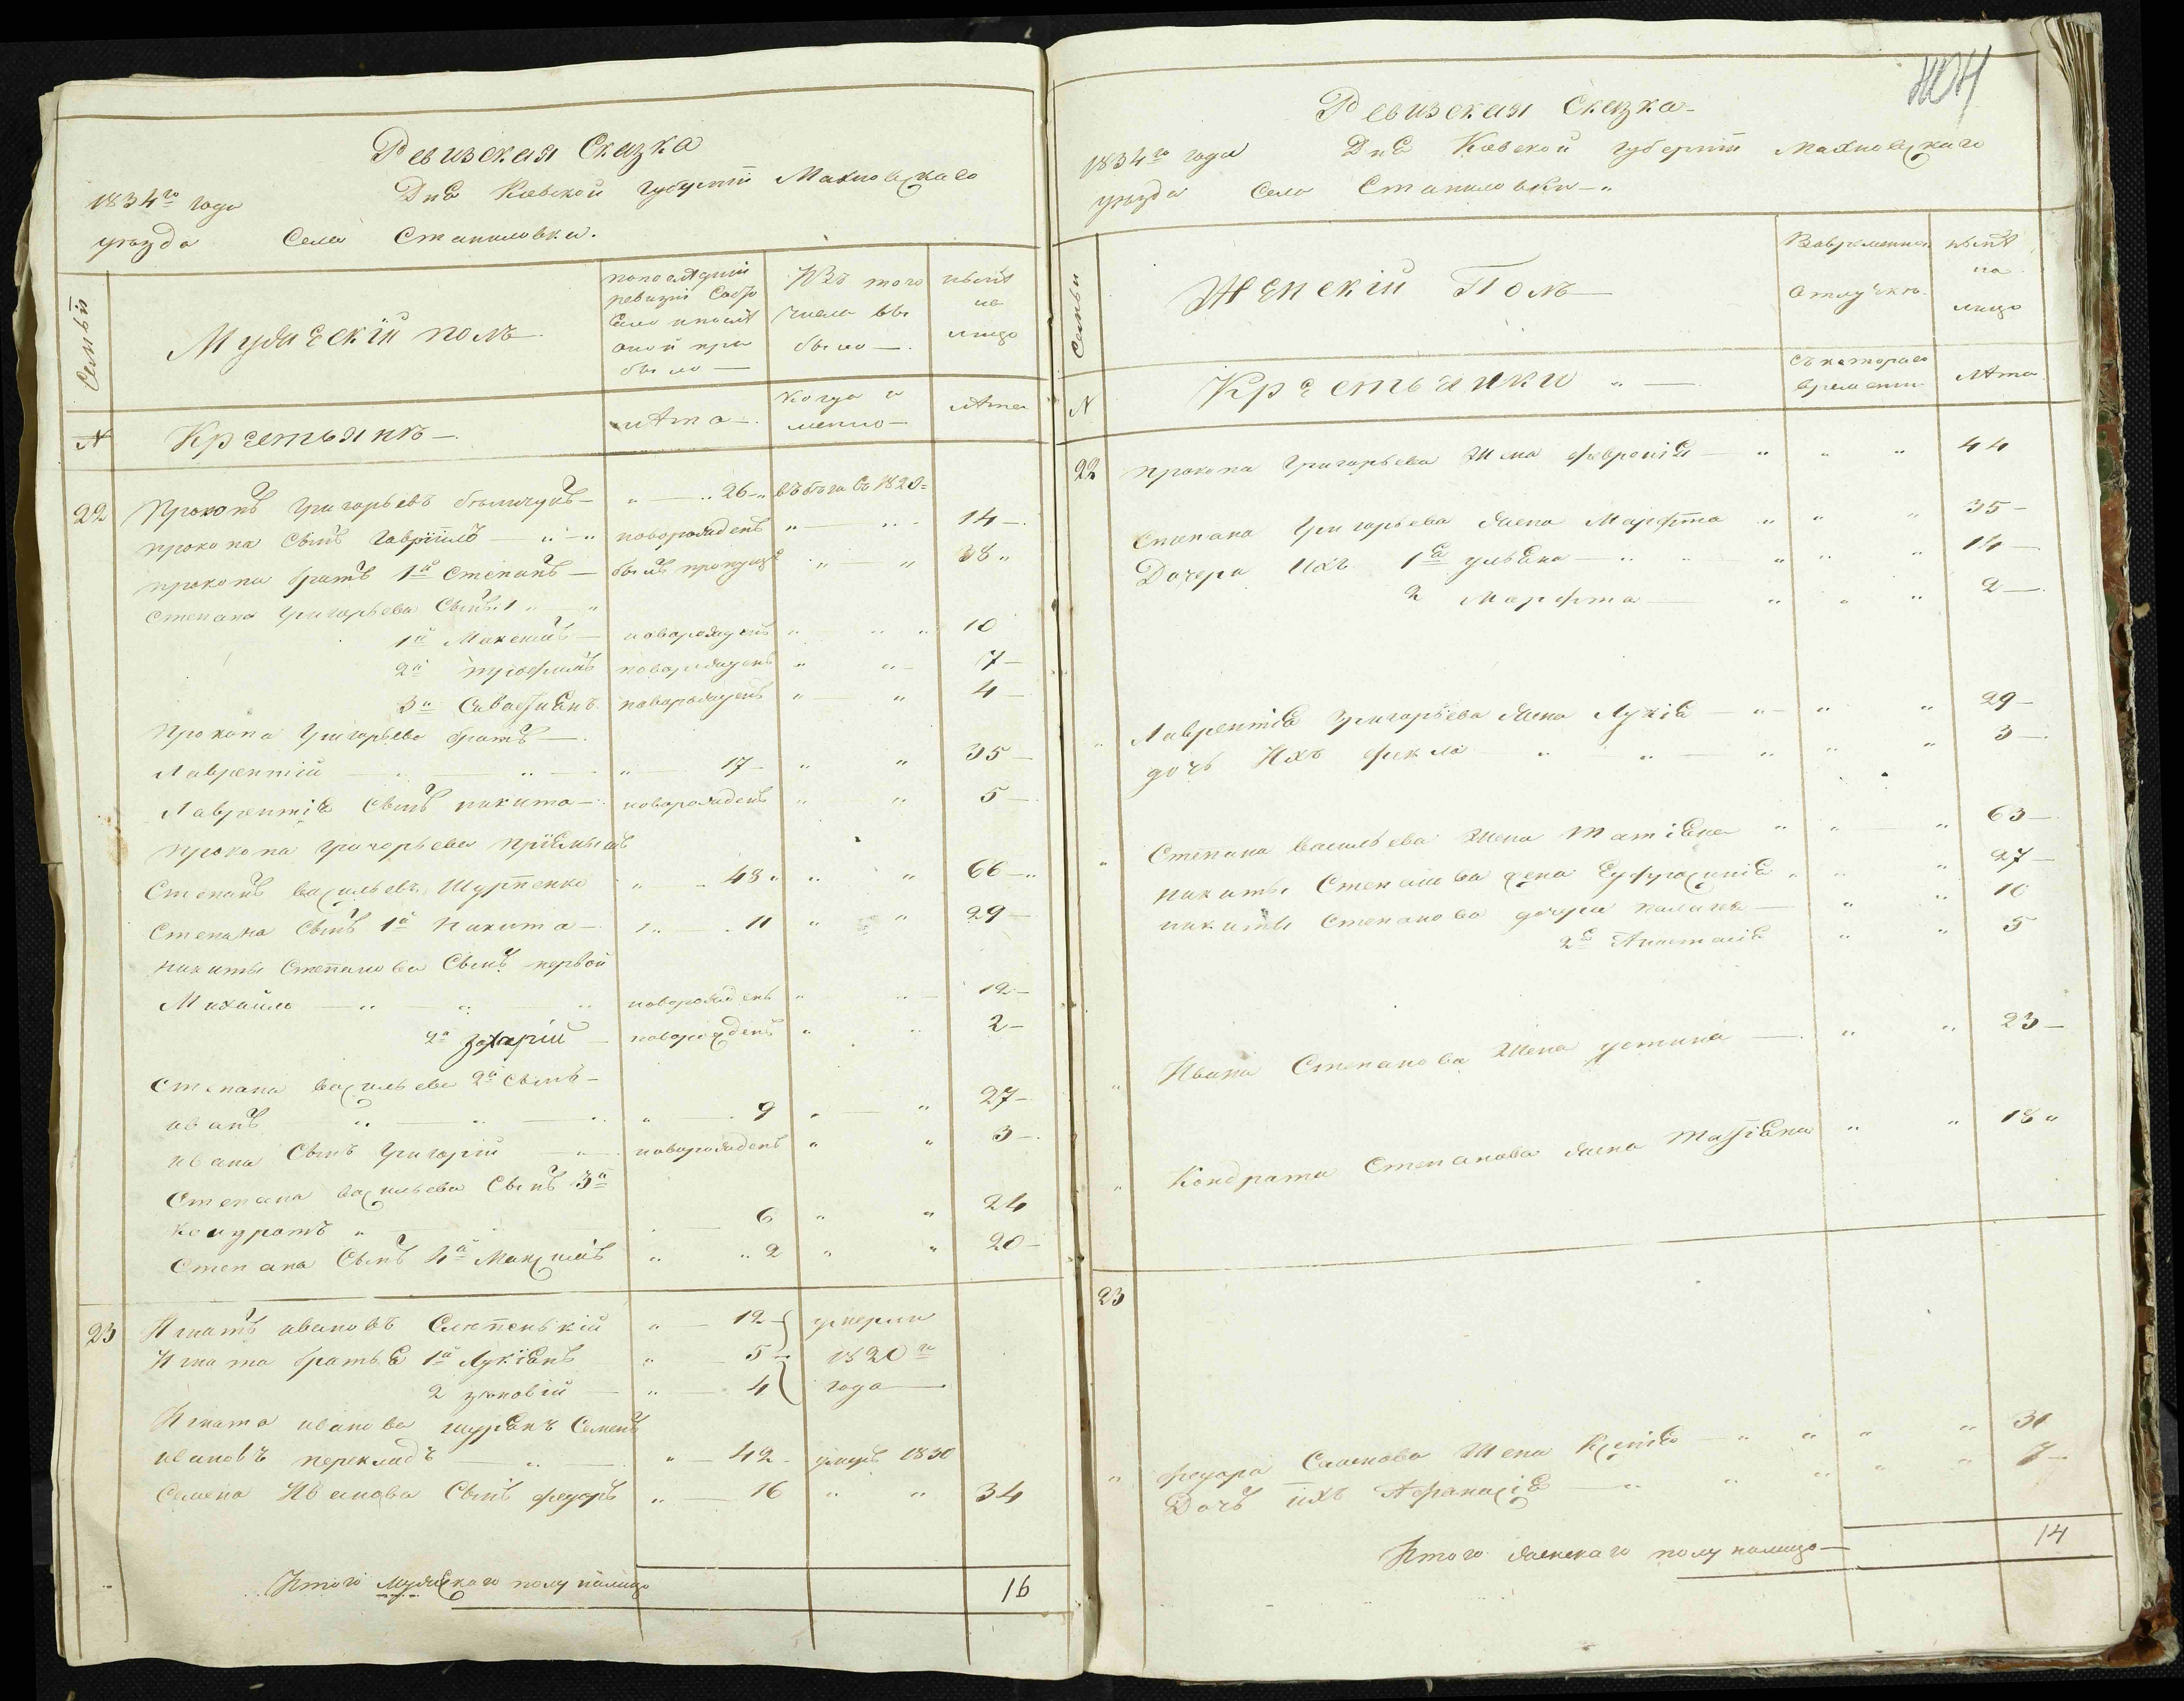 Ревизская Сказка
1834го года Дня Киевской губернiи Махновскаго
уезда Села Станиловки.
Семьи
Мужескiй полъ
по последней
ревизiи состо
яло и после
оной при
было
Изъ того
числа вы
было
ныне
на
лицо
N
Крестьяне
лета
когда и
менно
лета
22 Прокопъ Григорьевъ " 26 " въ бегахъ 1820
прокопа Сынъ Гаврiилъ новорожденъ " " 14
прокопа братъ 1й Степанъ былъ пропущ " " 38 "
Степана Григорьева Сынъ 1
1й Максимъ новорожденъ " " 10
2й трофимъ новорожденъ " " 7
3й Савастиянъ новорожденъ " " 4
Прокопа Григорьева братъ
Лаврентiй " 17 " " 35
Лаврентiя Сынъ никита новорожденъ " " 5
прокопа григорьева прiёмышъ
Степанъ васильевъ " 48 " " 66
Степана Сынъ 1й Никита " 11 " " 29
никиты Степанова Сынъ первой
Михайло новорожденъ " " 12
2й захарiй новорожденъ " " 2
Степана васильева 2й сынъ
иванъ " 9 " " 27
ивана Сынъ григорiй новорожденъ " " 3
Степана васильева Сынъ 3й
кондратъ " 6 " " 24
Степана Сынъ 4й Максимъ " 2 " " 20
23 Игнатъ ивановъ Слепенькiй " 12 умерли
Игната братья 1й Лукiянъ " 5 1820го
2 зиновiй " 4 года
Игната иванова шурянъ Семенъ
ивановъ перекладъ " 42 умеръ 1830
Семена Иванова Сынъ федоръ " 16 " " 34
Итого мужескаго полу налицо 16
Ревизская Сказка
1834го года Дня Киевской губернiи Махновскаго
уезда Села Станиловки
Семьи
Женскiй Полъ
Вовременной
отлучке
ныне
на
лицо
N
Крестьянки
съ котораго
времени
лета
22 прокопа Григорьева Жена февронiя " " " 44
Степана Григорьева жена Марфта " " " 35
Дочери Ихъ 1я ульяна " " " 14
2 Марфта " " " 2
" Лаврентiя Григорьева жена Лукiя " " " 29
дочь Ихъ фекла " " " 3
" Степана васильева Жена Татiяна " " " 63
никиты Степанова жена Еуфросинiя " " " 27
никиты Степанова дочери палагея " " 10
2я Анастасiя " " 5
" Ивана Степанова Жена устина " " 23
" Кондрата Степанова жена Татiяна " " 18 "
23
" федора Семенова Жена Ксенiя " " " " 31
Дочь ихъ Афанасiя " " " " 7
Итого женскаго полу налицо 14